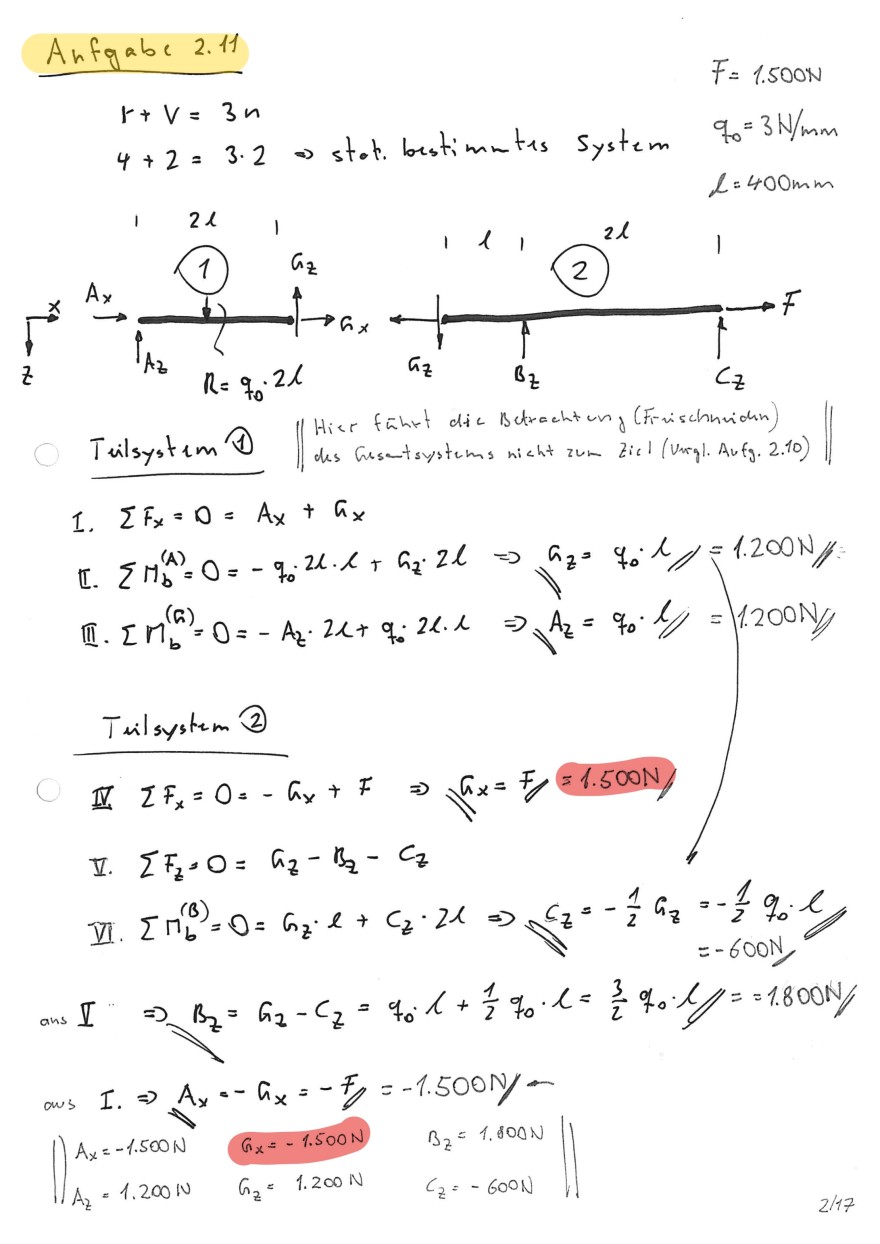 Aufgabe 2.11
F= 1.500N
r + V = 3n
q₀ = 3N/mm
4 + 2 = 3·2 => stat. bestimmtes System
l = 400mm
2l
l
2l
1
2
Gz
Ax
x
Gx
F
z
Az
R= q₀·2l
Gz
Bz
Cz
Teilsystem ①
Hier führt die Betrachtung (Freischneiden)
des Gesamtsystems nicht zum Ziel (Vergl. Aufg. 2.10)
I. ΣFx = 0 = Ax + Gx
II. ΣMb(A) = 0 = - q₀·2l·l + Gz·2l => Gz = q₀·l = 1.200N
III. ΣMb(G) = 0 = - Az·2l + q₀·2l·l => Az = q₀·l = 1.200N
Teilsystem ②
IV ΣFx = 0 = - Gx + F => Gx = F = 1.500N
V. ΣFz = 0 = Gz - Bz - Cz
VI. ΣMb(B) = 0 = Gz·l + Cz·2l => Cz = - 1/2 Gz = - 1/2 q₀·l
= -600N
aus V => Bz = Gz - Cz = q₀·l + 1/2 q₀·l = 3/2 q₀·l = = 1.800N
aus I. => Ax = - Gx = - F = -1.500N ←
Ax = -1.500N Gx = - 1.500N Bz = 1.800N
Az = 1.200N Gz = 1.200N Cz = - 600N
2/17